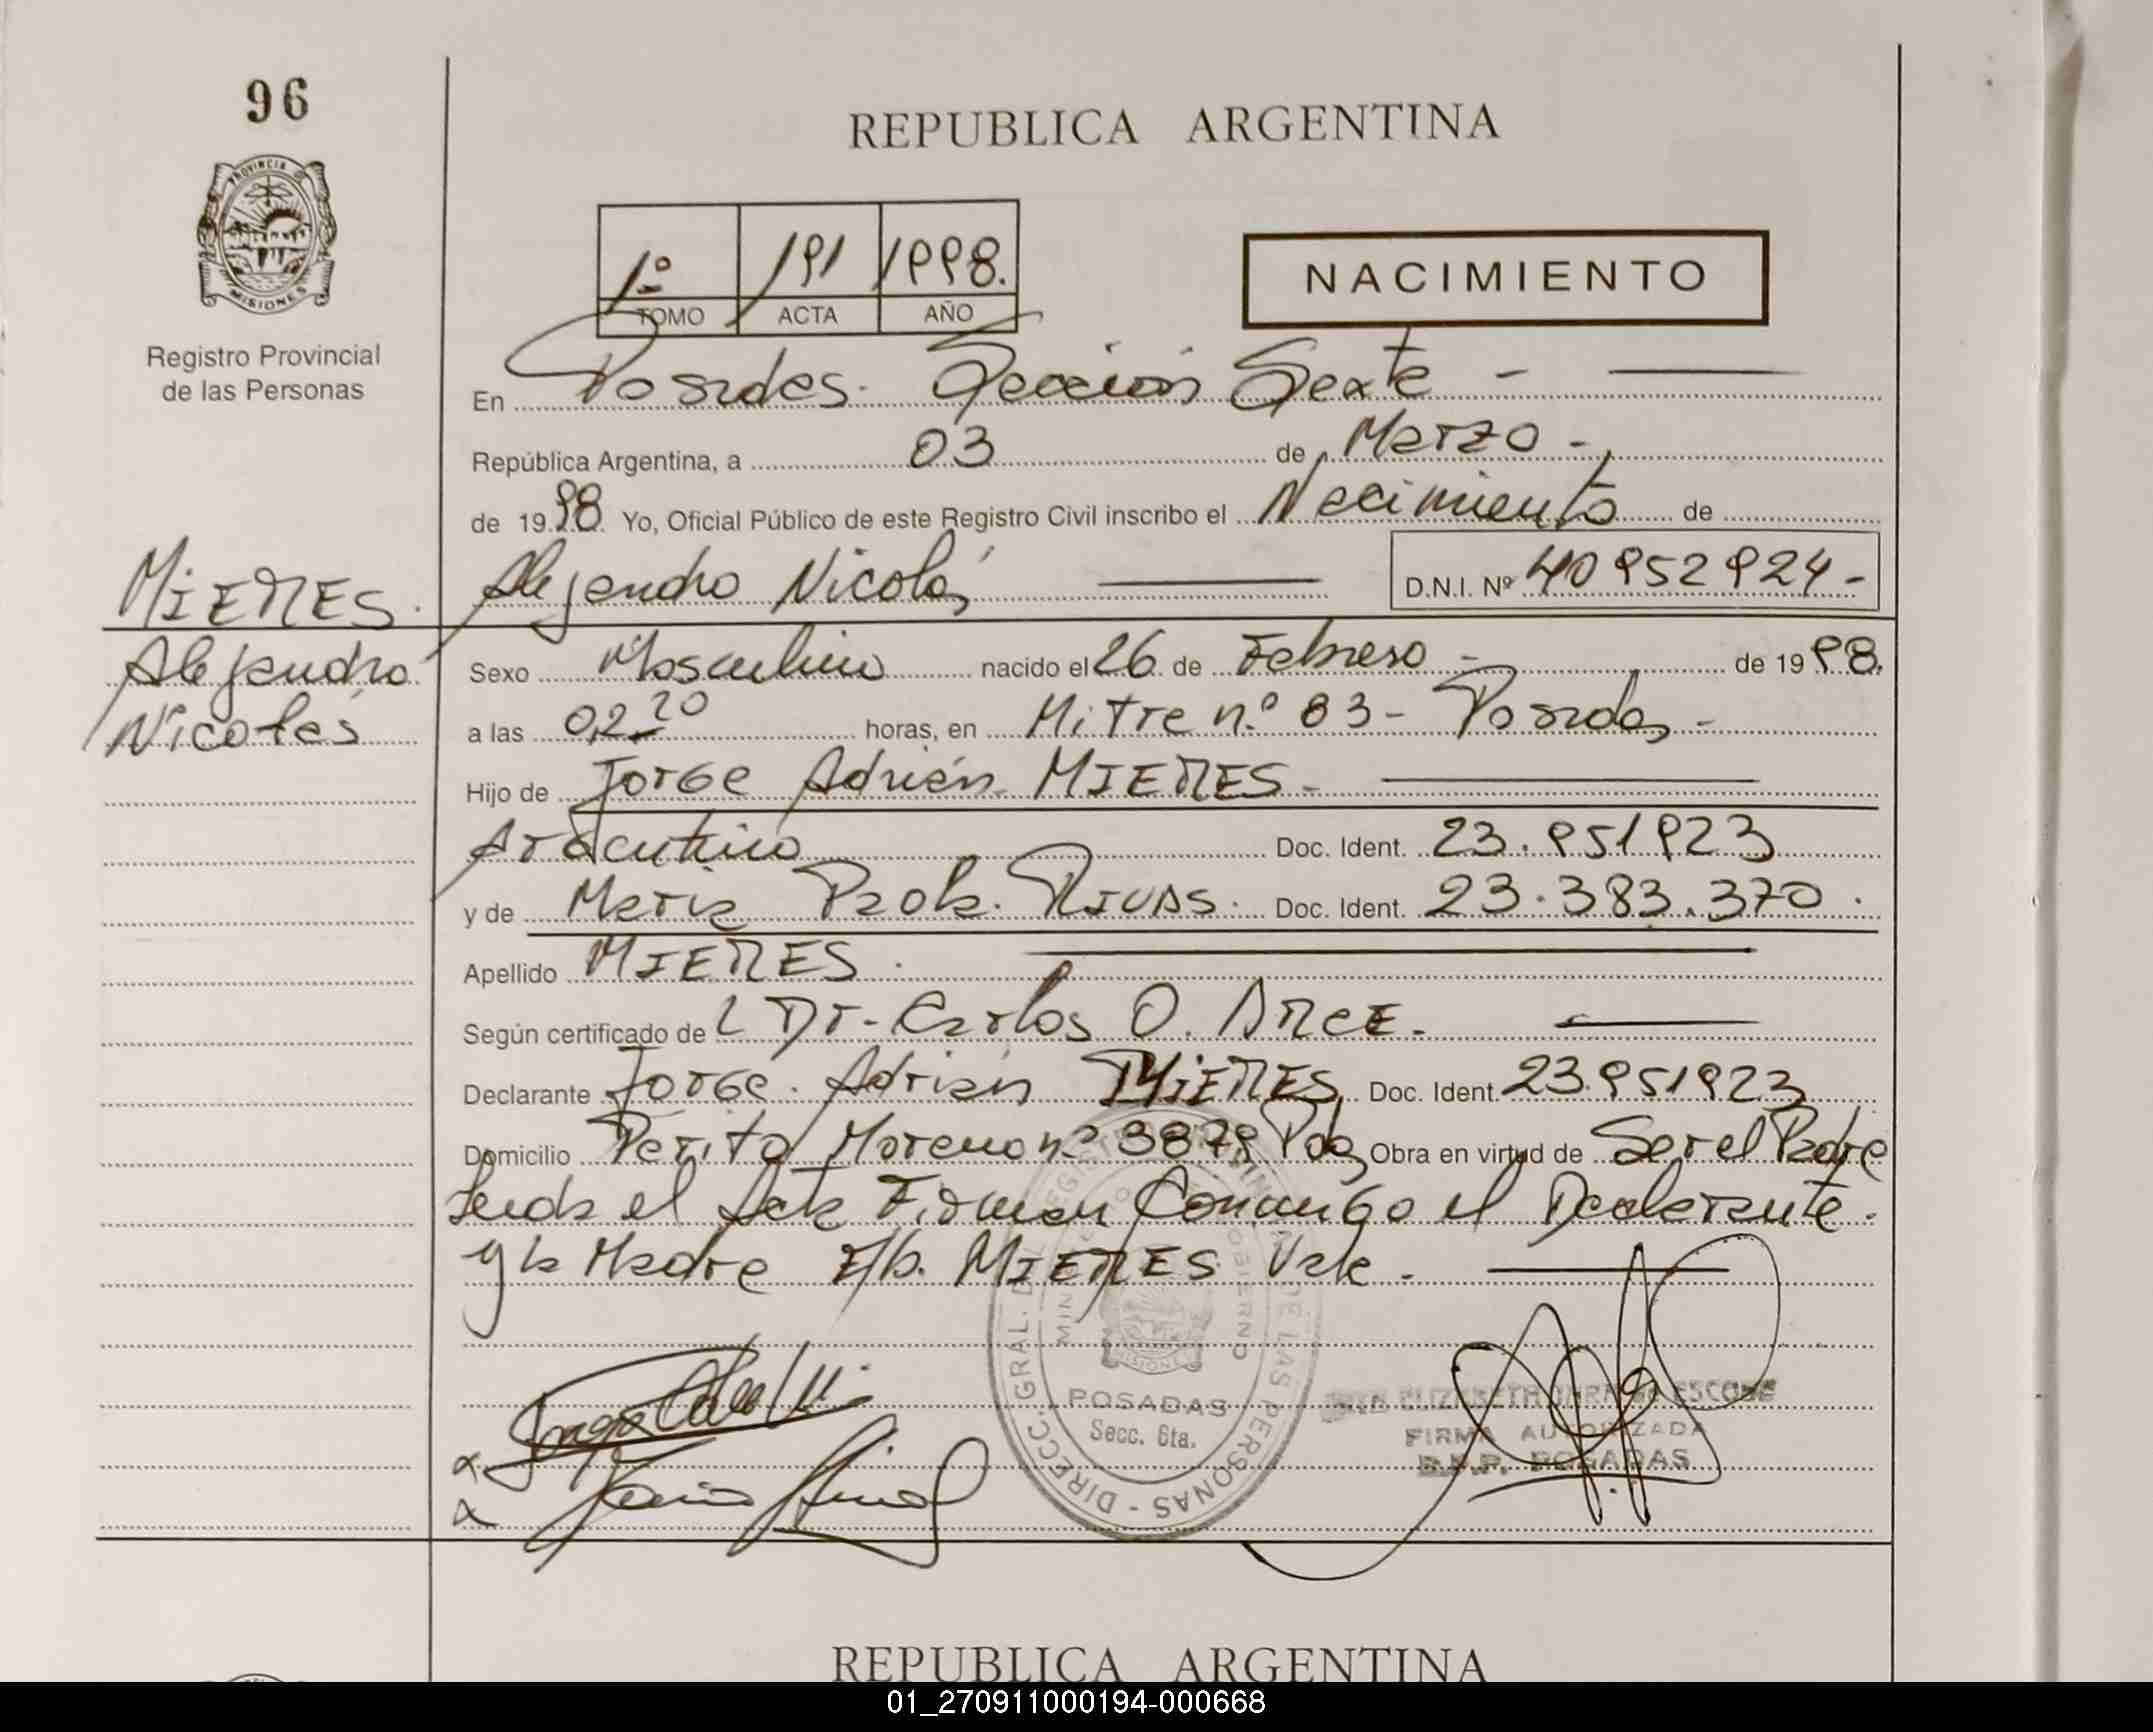 96
REPUBLICA ARGENTINA
PROVINCIA DE MISIONES
1º 191 1998.
TOMO ACTA AÑO
NACIMIENTO
Registro Provincial
de las Personas
En Posadas. Sección Sexta -
República Argentina, a 03 de Marzo -
de 1998. Yo, Oficial Público de este Registro Civil inscribo el Nacimiento de
Alejandro Nicolás D.N.I. Nº 40952924-
MIERES.
Alejandro
Nicolás
Sexo Masculino nacido el 26 de Febrero - de 1998.
a las 02,20 horas, en Mitre n.º 83- Posadas -
Hijo de Jorge Adrián MIERES -
Argentino Doc. Ident. 23.951923
y de María Paola RIVAS. Doc. Ident. 23.383.370.
Apellido MIERES.
Según certificado de L Dr. Carlos O. ARCE.
Declarante Jorge Adrián MIERES Doc. Ident. 23.951923
Domicilio Perito Moreno nº 3879 Pdas Obra en virtud de Ser el Padre
Leída el Acta Firman Conmigo el Declarante.
y la Madre E/b. MIERES Vale.
DIRECC. GRAL. DEL REGISTRO PROVINCIAL DE LAS PERSONAS -
MINISTERIO DE GOBIERNO
MISIONES
POSADAS
Secc. 6ta.
ELIZABETH
FIRMA AUTORIZADA
POSADAS
REPUBLICA ARGENTINA
01_270911000194-000668